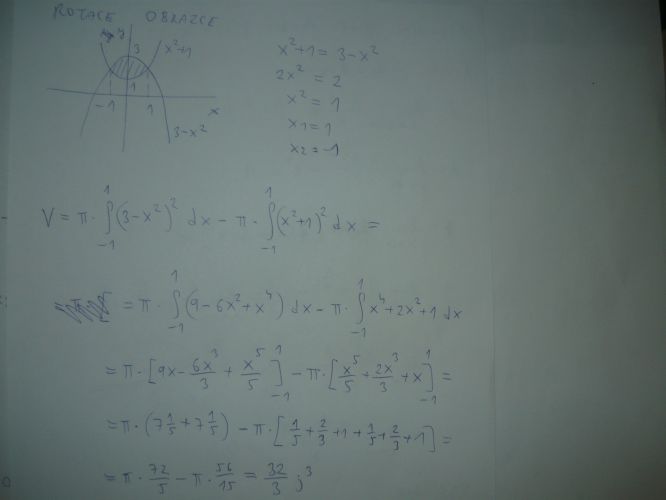 ROTACE OBRAZCE
y
3
x²+1
1
-1
1
x
3-x²
x²+1 = 3-x²
2x² = 2
x² = 1
x₁ = 1
x₂ = -1
V = π · ∫₋₁¹ (3-x²)² dx - π · ∫₋₁¹ (x²+1)² dx =
= π · ∫₋₁¹ (9-6x²+x⁴) dx - π · ∫₋₁¹ x⁴+2x²+1 dx
= π · [9x - 6x³/3 + x⁵/5]₋₁¹ - π · [x⁵/5 + 2x³/3 + x]₋₁¹ =
= π · (7 1/5 + 7 1/5) - π · [1/5 + 2/3 + 1 + 1/5 + 2/3 + 1] =
= π · 72/5 - π · 56/15 = 32/3 j³